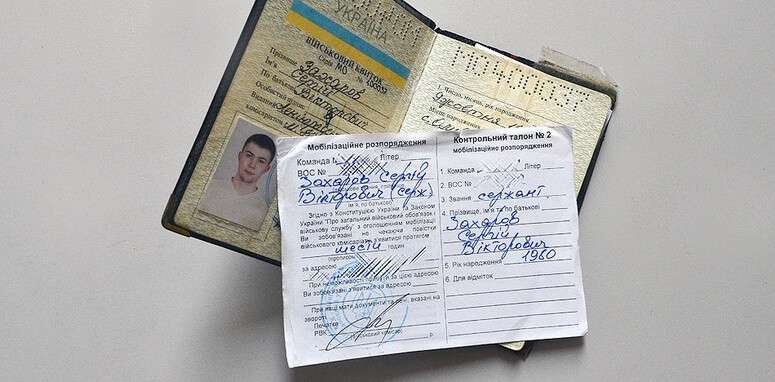 УКРАЇНА
ВІЙСЬКОВИЙ КВИТОК
Серія МО №
Прізвище Захаров
Ім'я Сергій
По батькові Вікторович
Особистий
Виданий
1. Число, місяць, рік народження
Місце народження
Мобілізаційне розпорядження
Команда № Літер
ВОС №
Захаров Сергій
Вікторович (серж)
ім'я, по батькові)
Згідно з Конституцією України та Законом
України "Про загальний військовий обов'язок і
військову службу" з оголошенням мобілізації
Ви зобов'язані не чекаючи повістки
військового комісаріату з'явитися протягом
шести годин
(прописом)
за адресою
При неможливості прибути за цією адресою
Ви зобов'язані з'явитися за адресою
При явці мати документи та речі, вказані на
звороті
Печатка
РВК
військовий комісар р.
Контрольний талон № 2
мобілізаційне розпорядження
1. Команда Літер
2. ВОС №
3. Звання сержант
4. Прізвище, ім'я та по батькові
Захаров
Сергій
Вікторович
1960
5. Рік народження
6. Для відміток